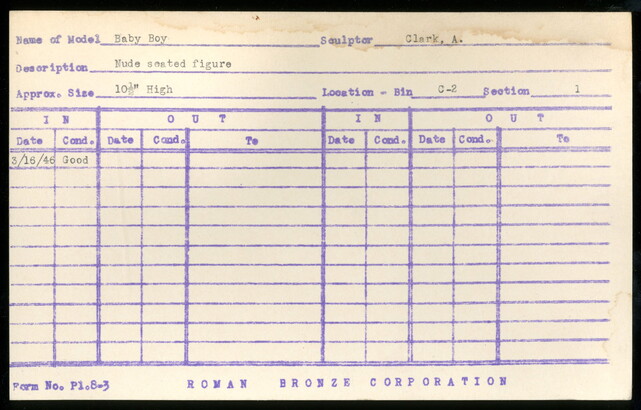 Name of Model Baby Boy Sculptor Clark, A.
Description Nude seated figure
Approx. Size 10½" High Location - Bin C-2 Section 1
IN OUT IN OUT
Date Cond. Date Cond. To Date Cond. Date Cond. To
3/16/46 Good
Form No. P1.8-3 ROMAN BRONZE CORPORATION